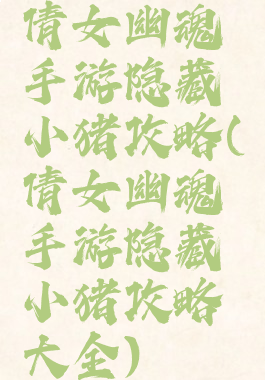 倩女幽魂
手游隐藏
小猪攻略(
倩女幽魂
手游隐藏
小猪攻略
大全)